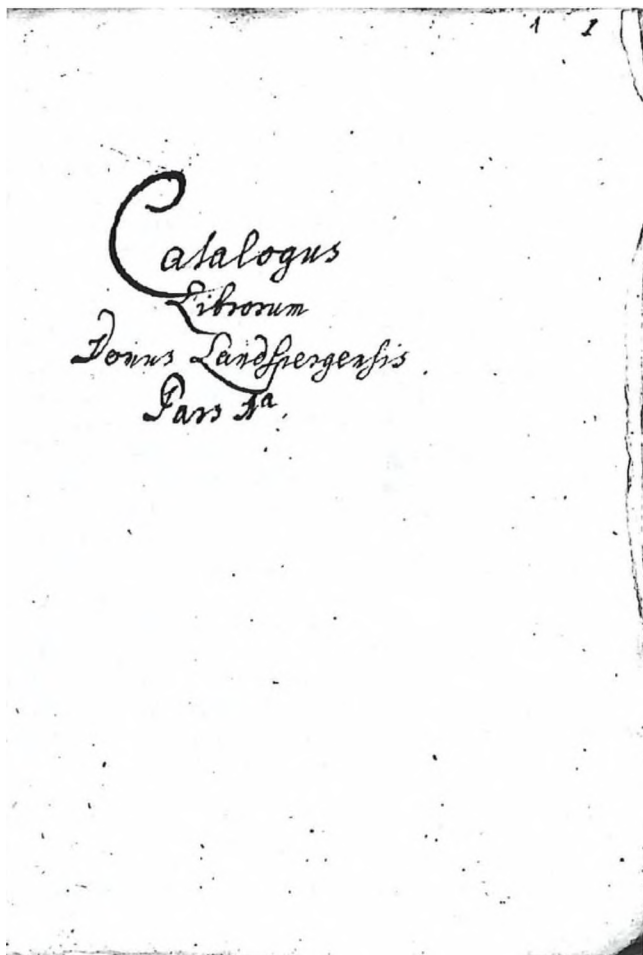 1 1
Catalogus
Librorum
Domus Landspergensis.
Pars 1ᵃ.